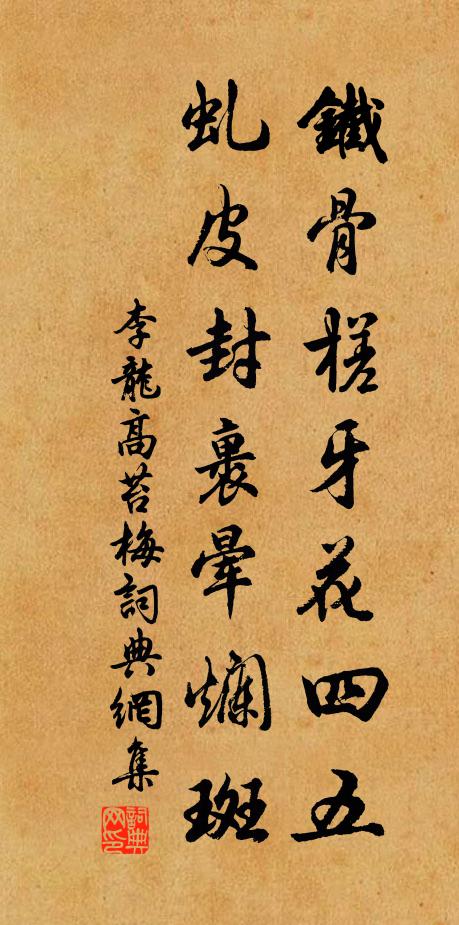 鐵骨槎牙花四五
虬皮封裹暈斕斑
李龍高苔梅詞典網集
詞典网印